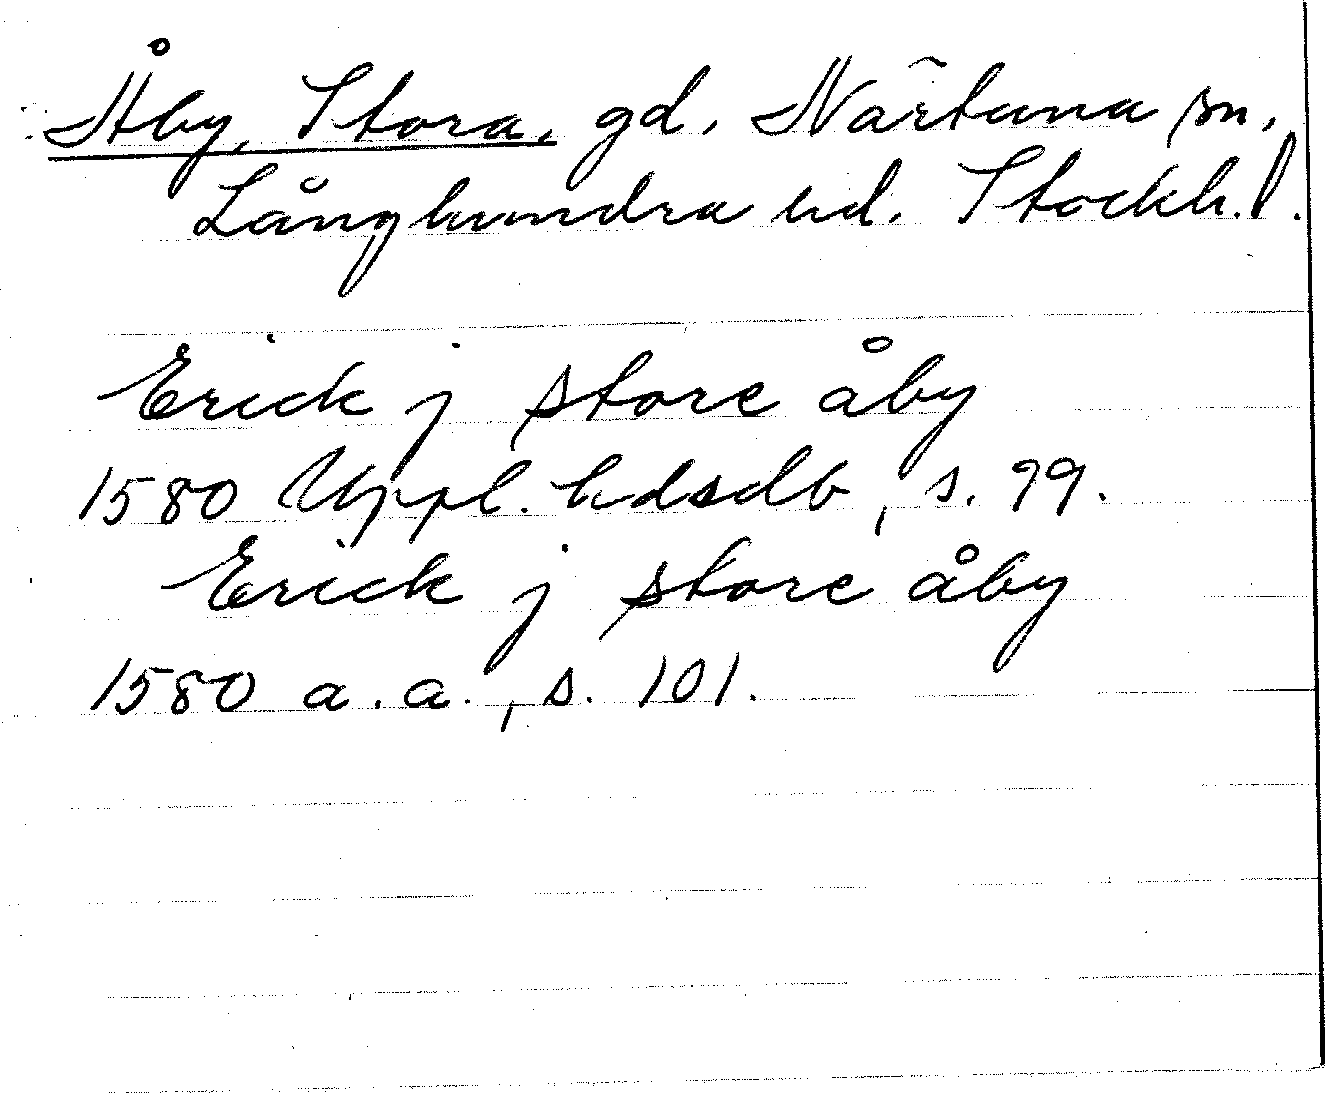 Åby, Stora, gd, Närtuna sn,
Långhundra hd. Stockh.l.
Erick j store åby
1580 Uppl. hdsdb, s. 99.
Erick j store åby
1580 a.a., s. 101.